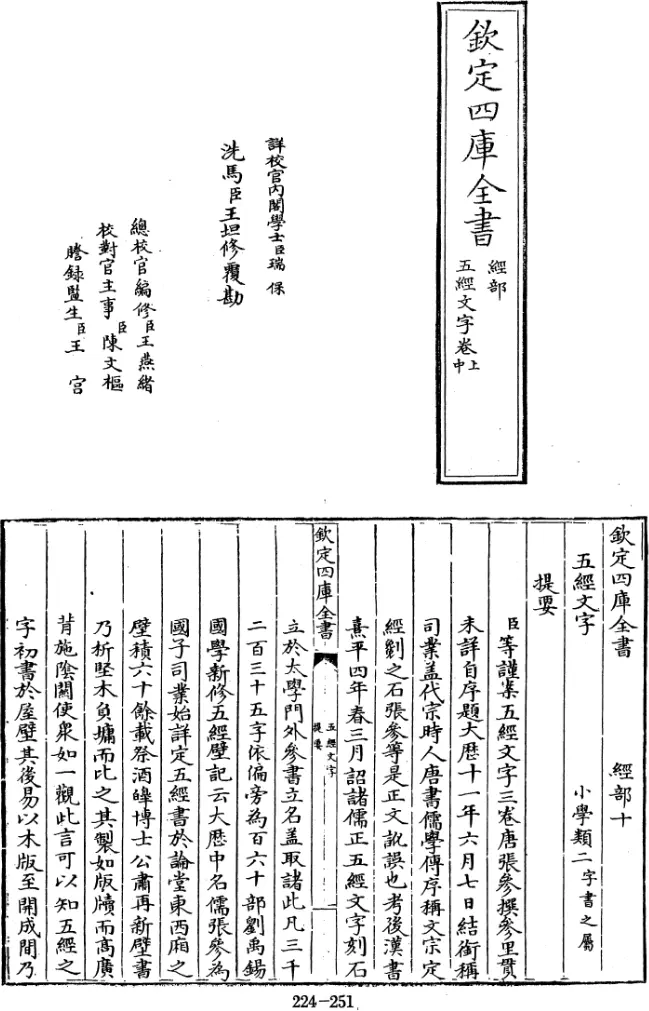 欽定四庫全書
經部
五經文字卷上中
詳校官內閣學士臣瑞保
洗馬臣王坦修覆勘
總校官編修臣王燕緒
校對官主事臣陳文樞
謄錄監生臣王宮
欽定四庫全書 經部十
五經文字 小學類二字書之屬
提要
臣等謹案五經文字三卷唐張參撰參里貫
未詳自序題大厯十一年六月七日結銜稱
司業盖代宗時人唐書儒學傳序稱文宗定
經劖之石張參等是正文訛誤也考後漢書
熹平四年春三月詔諸儒正五經文字刻石
欽定四庫全書
五經文字
提要
立於太學門外參書立名盖取諸此凡三千
二百三十五字依偏旁為百六十部劉禹錫
國學新修五經壁記云大厯中名儒張參為
國子司業始詳定五經書於論堂東西廂之
壁積六十餘載祭酒皥博士公肅再新壁書
乃析堅木負墉而比之其製如版牘而高廣
背施陰關使衆如一觀此言可以知五經之
字初書於屋壁其後易以木版至開成間乃
224-251